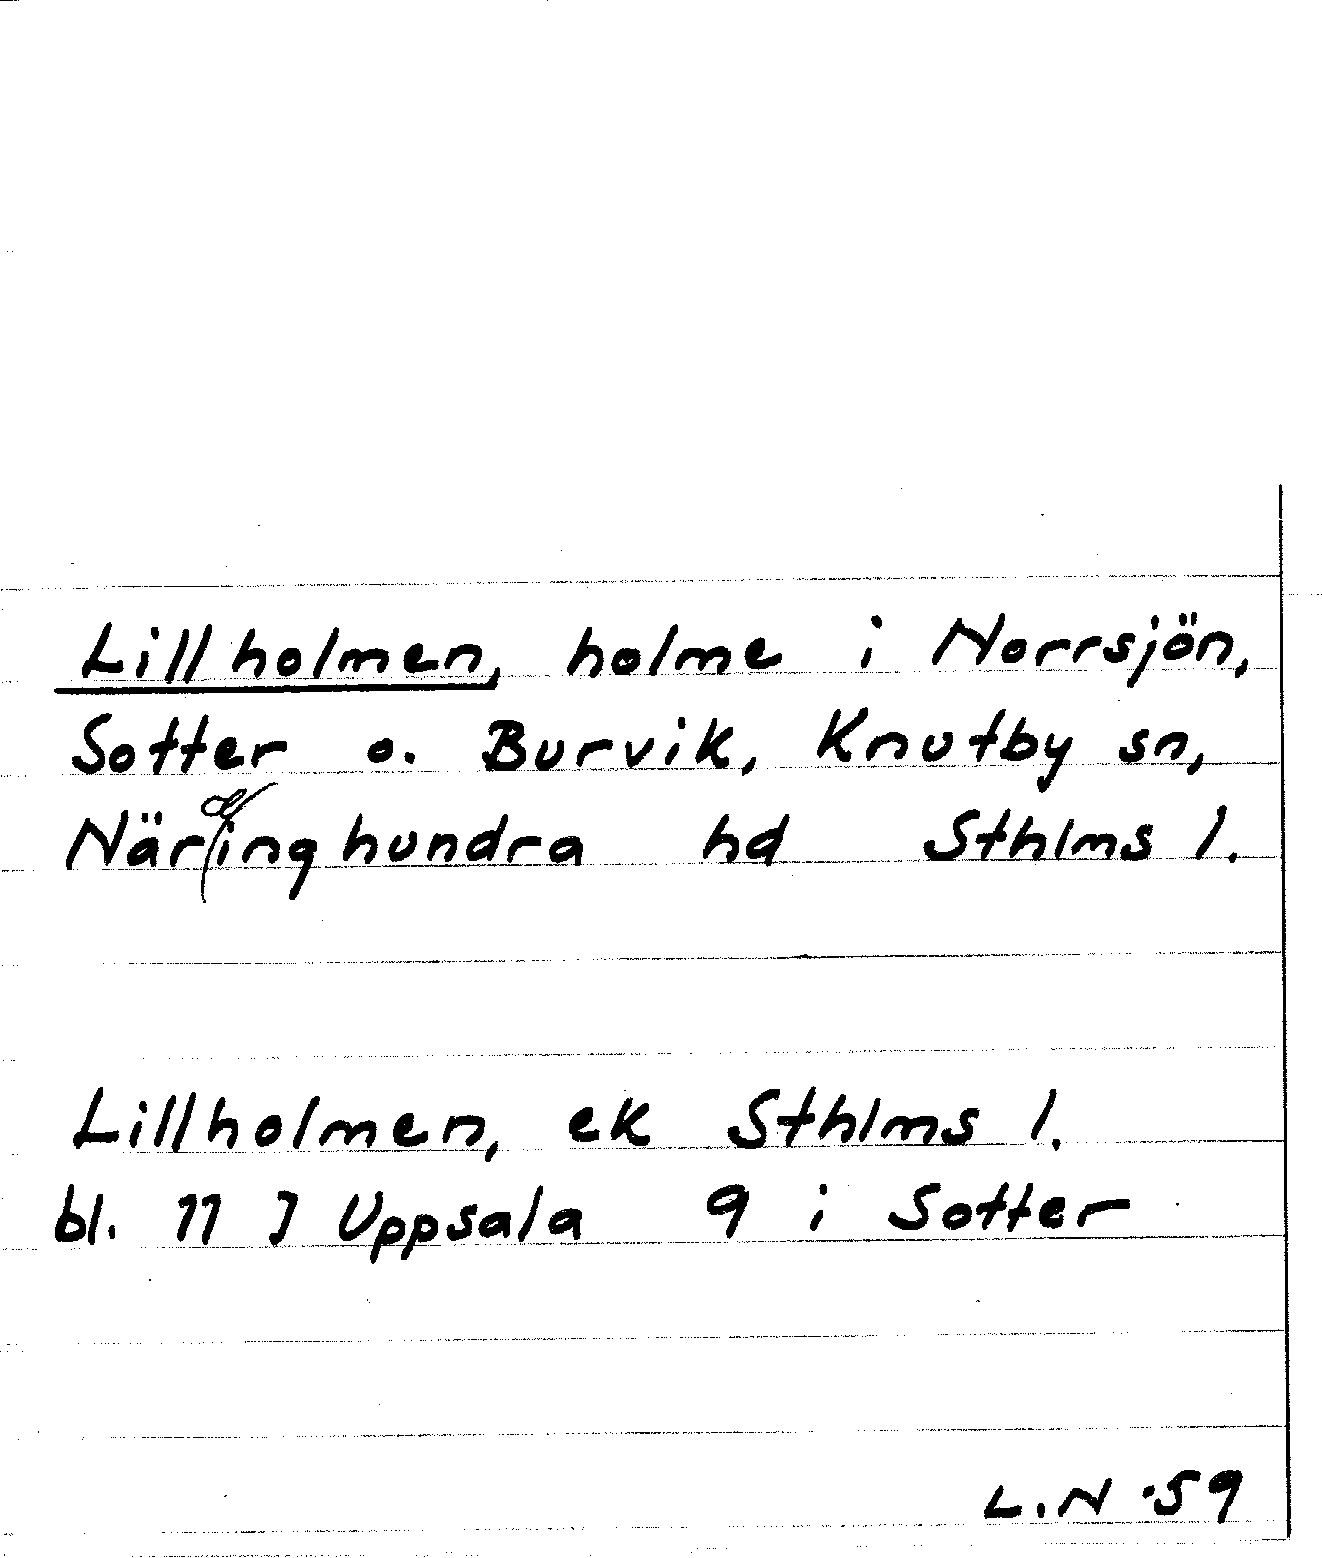 Lillholmen, holme i Norrsjön,
Sotter o. Burvik, Knutby sn,
Närdinghundra hd Sthlms l.
Lillholmen, ek Sthlms l.
bl. 11 I Uppsala 9 i Sotter
L.N -59